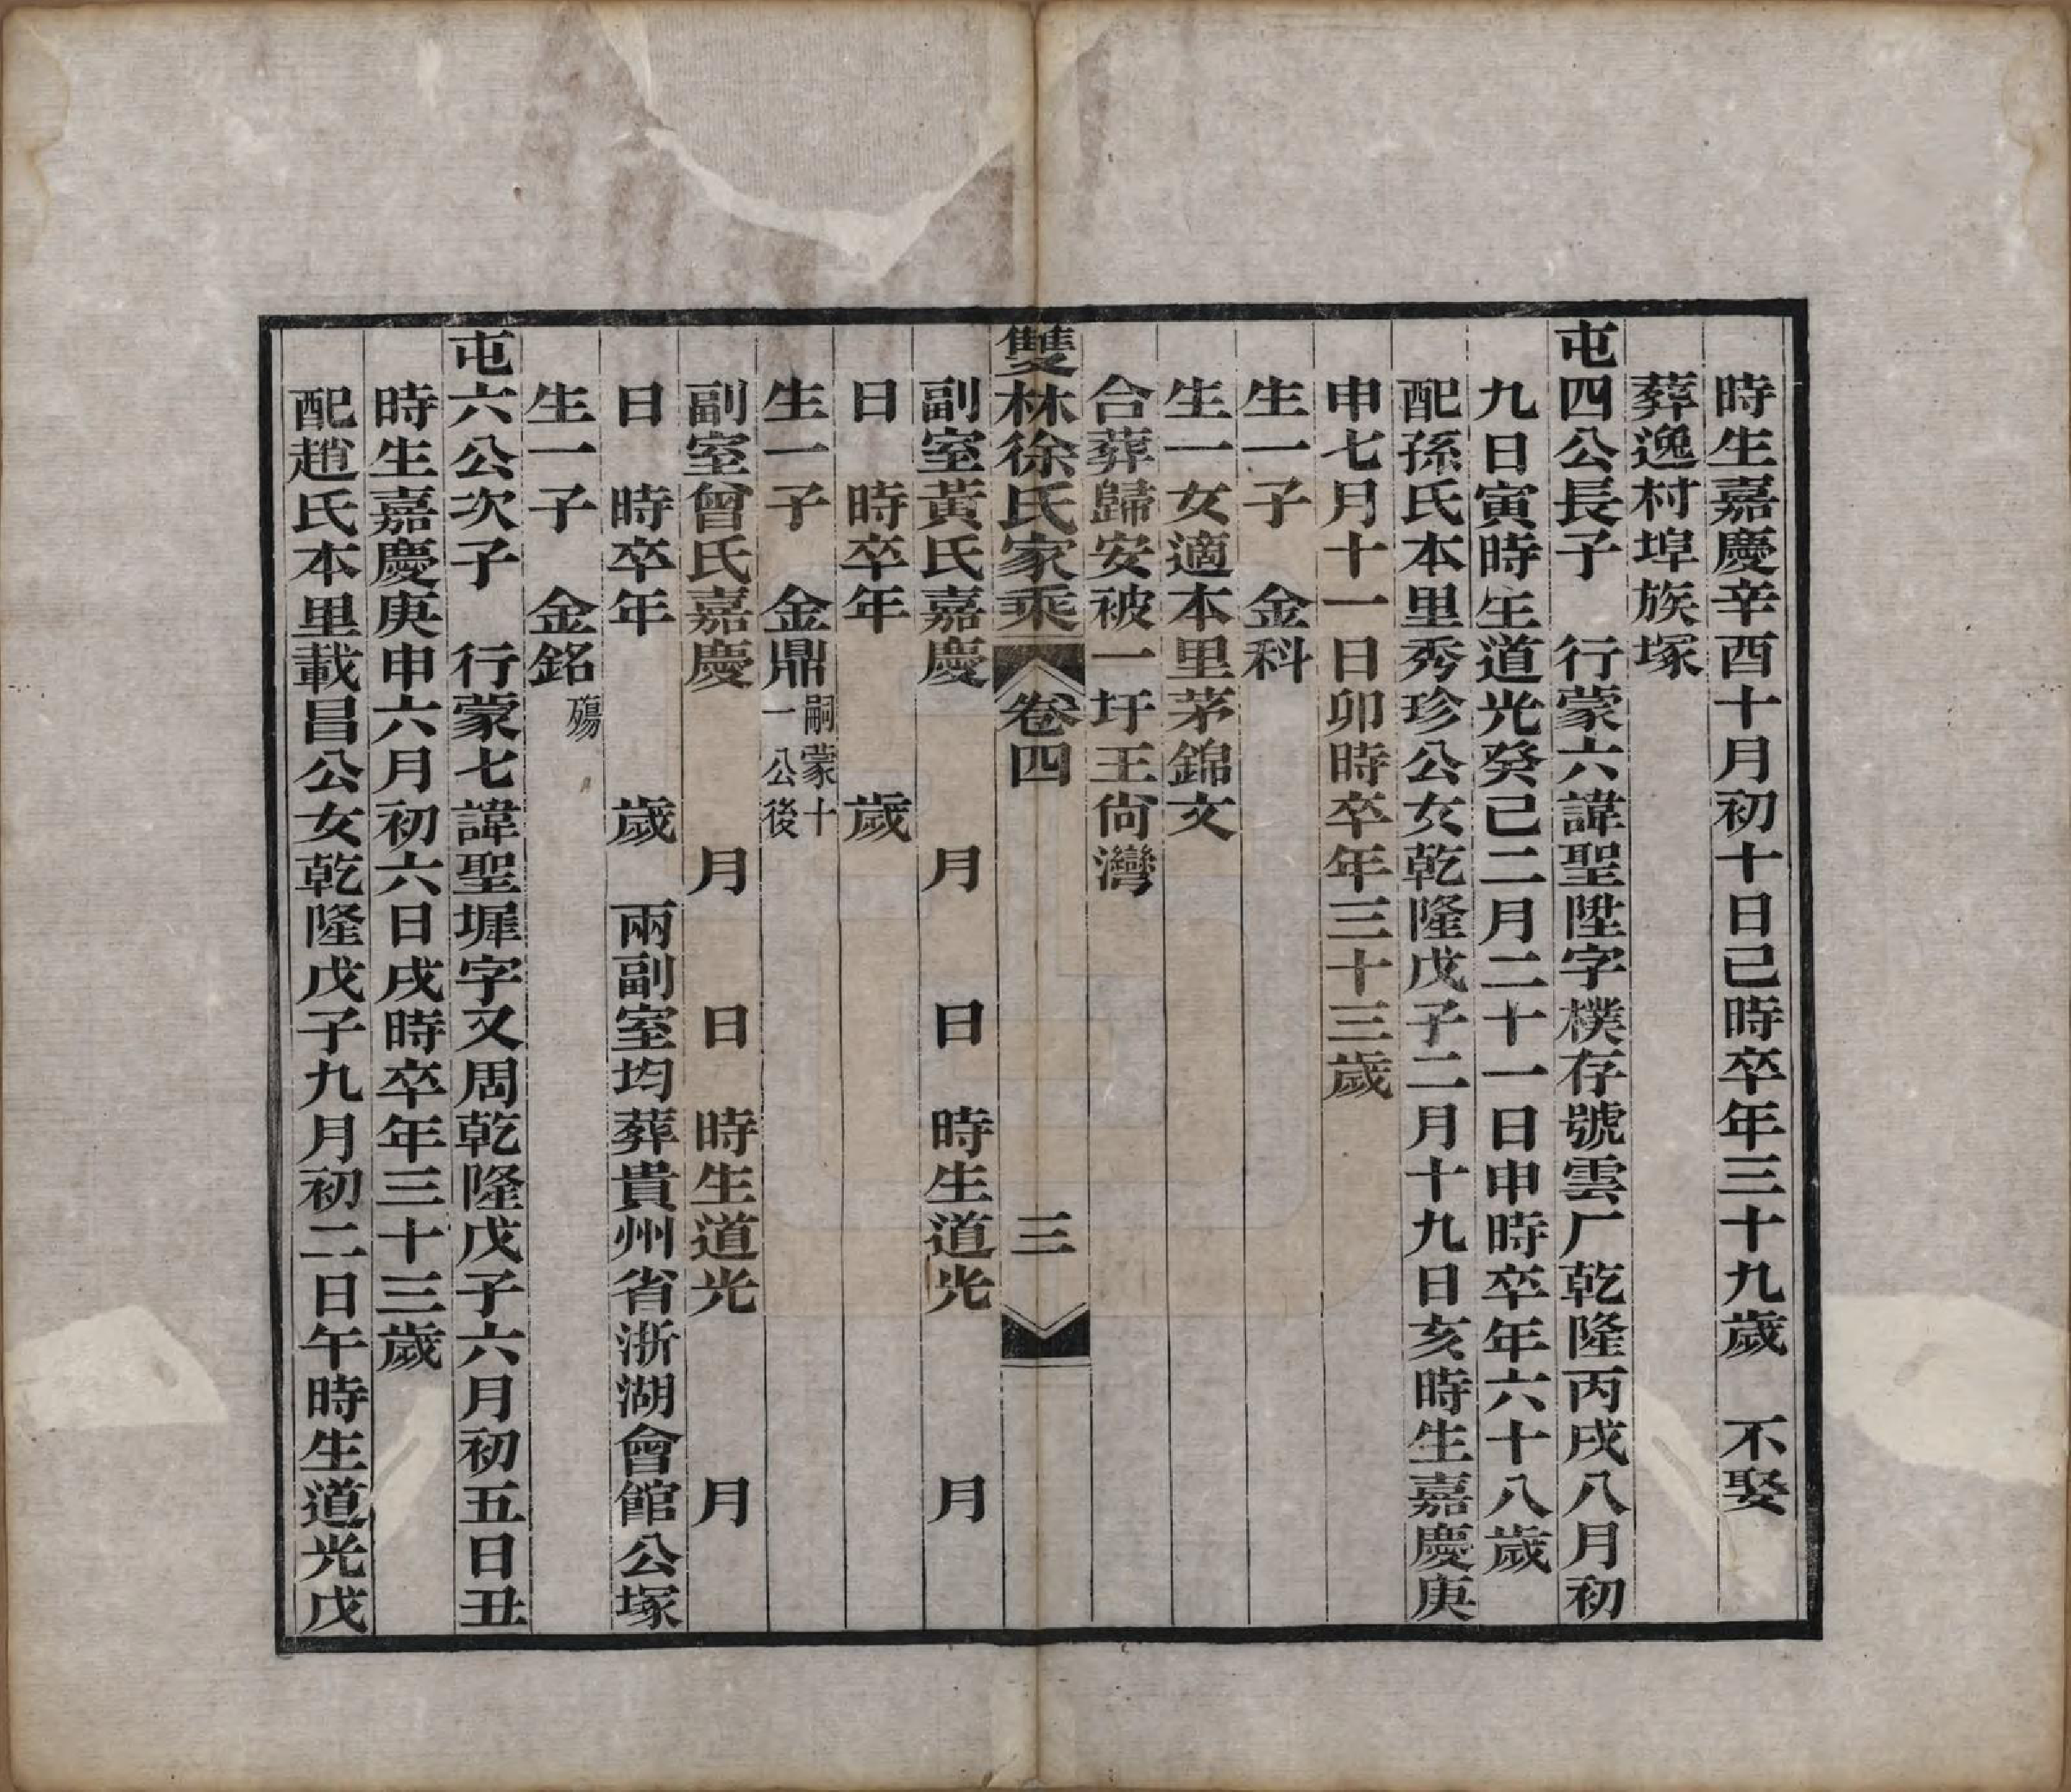 時生嘉慶辛酉十月初十日己時卒年三十九歲　不娶
葬逸村埠族塚
屯四公長子　行蒙六諱聖陞字樸存號雲厂乾隆丙戌八月初
九日寅時生道光癸己二月二十一日申時卒年六十八歲
配孫氏本里秀珍公女乾隆戊子二月十九日亥時生嘉慶庚
申七月十一日卯時卒年三十三歲
生一子　金科
生一女適本里茅錦文
合葬歸安被一圩王尙灣
雙林徐氏家乘　卷四　三
副室黃氏嘉慶　　　月　　日　時生道光　　　月
日　時卒年　　　歲
生一子　金鼎嗣蒙十一公後
副室曾氏嘉慶　　　月　　日　時生道光　　　月
日　時卒年　　　歲　兩副室均葬貴州省浙湖會館公塚
生一子　金銘殤
屯六公次子　行蒙七諱聖墀字又周乾隆戊子六月初五日丑
時生嘉慶庚申六月初六日戌時卒年三十三歲
配趙氏本里載昌公女乾隆戊子九月初二日午時生道光戊